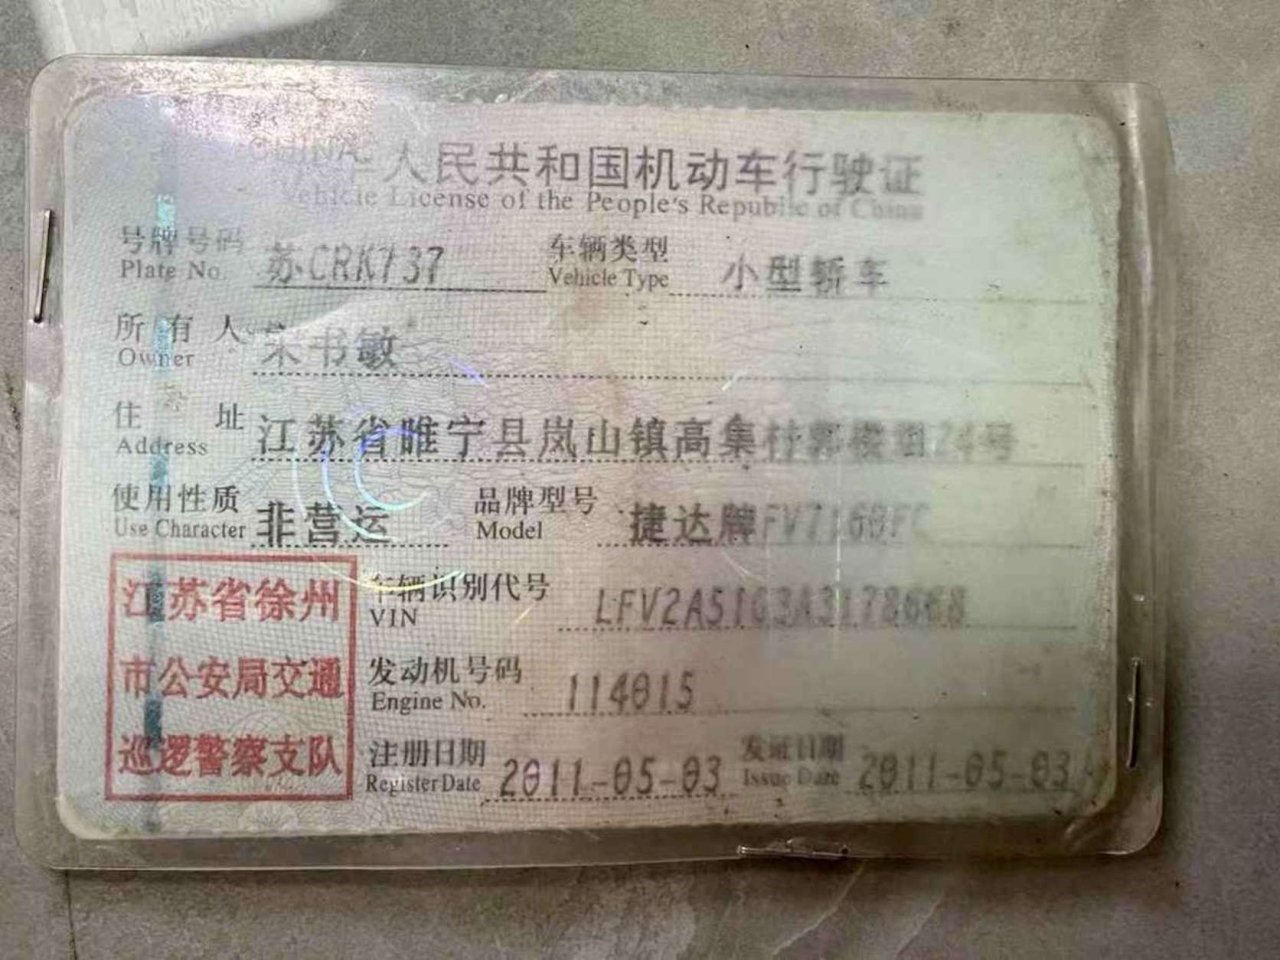 CHINA 人民共和国机动车行驶证
Vehicle License of the People's Republic of China
号牌号码 苏CRK737 车辆类型 小型轿车
Plate No. Vehicle Type
所有人 朱书敏
Owner
住址 江苏省睢宁县岚山镇高集村郭楼组24号
Address
使用性质 非营运 品牌型号 捷达牌FV7160FC
Use Character Model
江苏省徐州
市公安局交通
巡逻警察支队
车辆识别代号 LFV2A51G3A3178668
VIN
发动机号码 114015
Engine No.
注册日期 2011-05-03 发证日期 2011-05-03
Register Date Issue Date